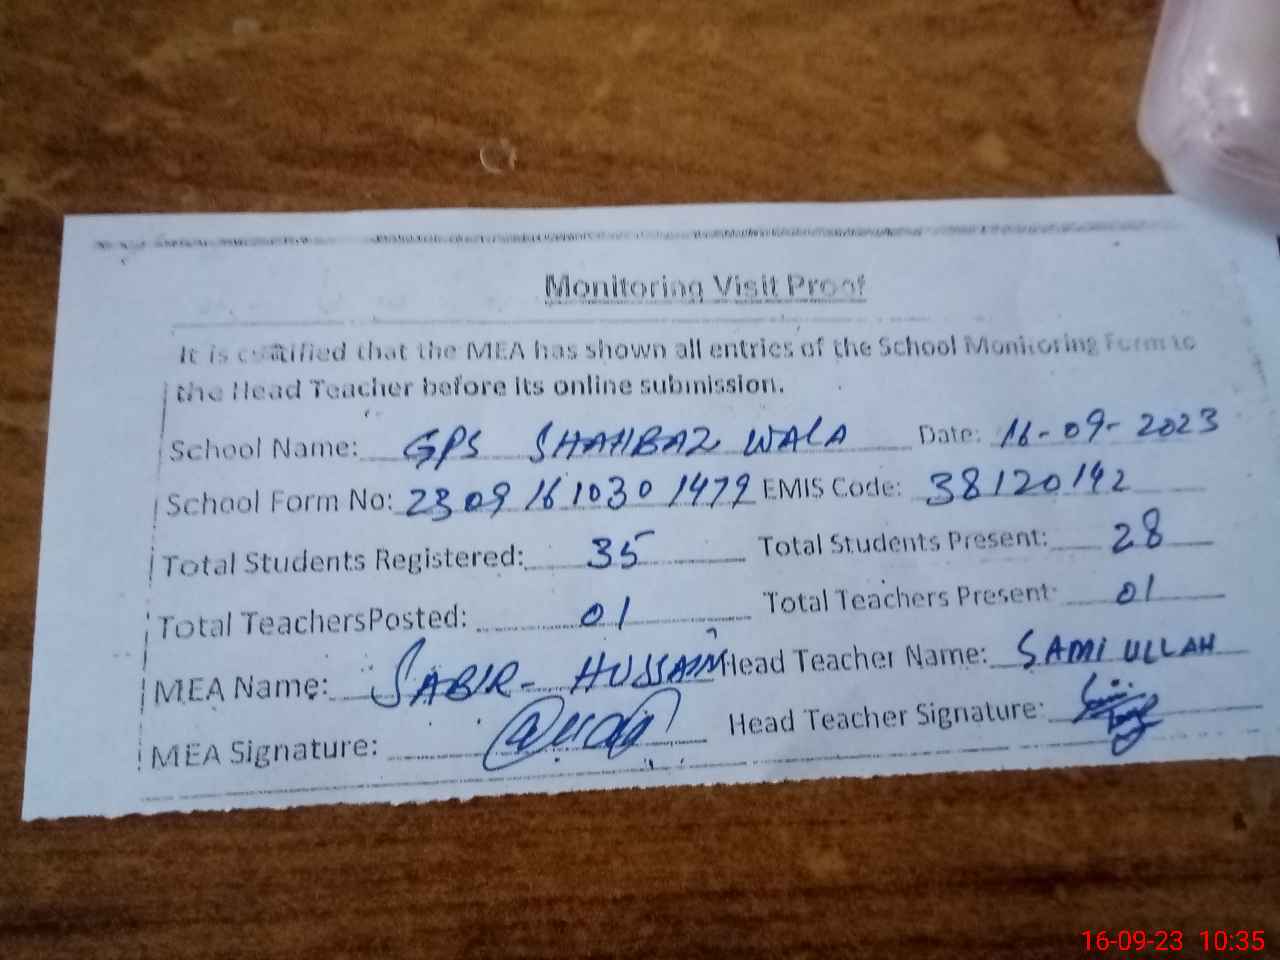 Monitoring Visit Proof
It is certified that the MEA has shown all entries of the School Monitoring Form to
the Head Teacher before its online submission.
School Name: GPS SHAHBAZ WALA Date: 16-09-2023
School Form No: 2309161030 1479 EMIS Code: 38120142
Total Students Registered: 35 Total Students Present: 28
Total TeachersPosted: 01 Total Teachers Present: 01
MEA Name: SABIR HUSSAIN Head Teacher Name: SAMI ULLAH
MEA Signature: Head Teacher Signature:
16-09-23 10:35